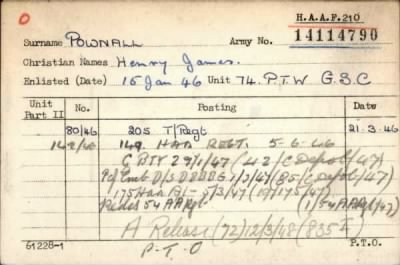 O
H.A.A.F.210
Surname POWNALL Army No. 14114790
Christian Names Henry James.
Enlisted (Date) 15 Jan 46 Unit 74. P.T.W G.S.C
Unit Part II No. Posting Date
80/46 205 T/Regt 21-3-46
149/46 149 HAA REGT. 5-6-46
G BTY 27/1/47 (42/C Depot/47)
1/3/47 (85/C Depot/47)
175 Haa Bt- 5/3/47 (17/175/47)
54 AA (1/54 AA /47)
A Release (72) 12/3/48 (835
P-T-O
51228-1 P.T.O.